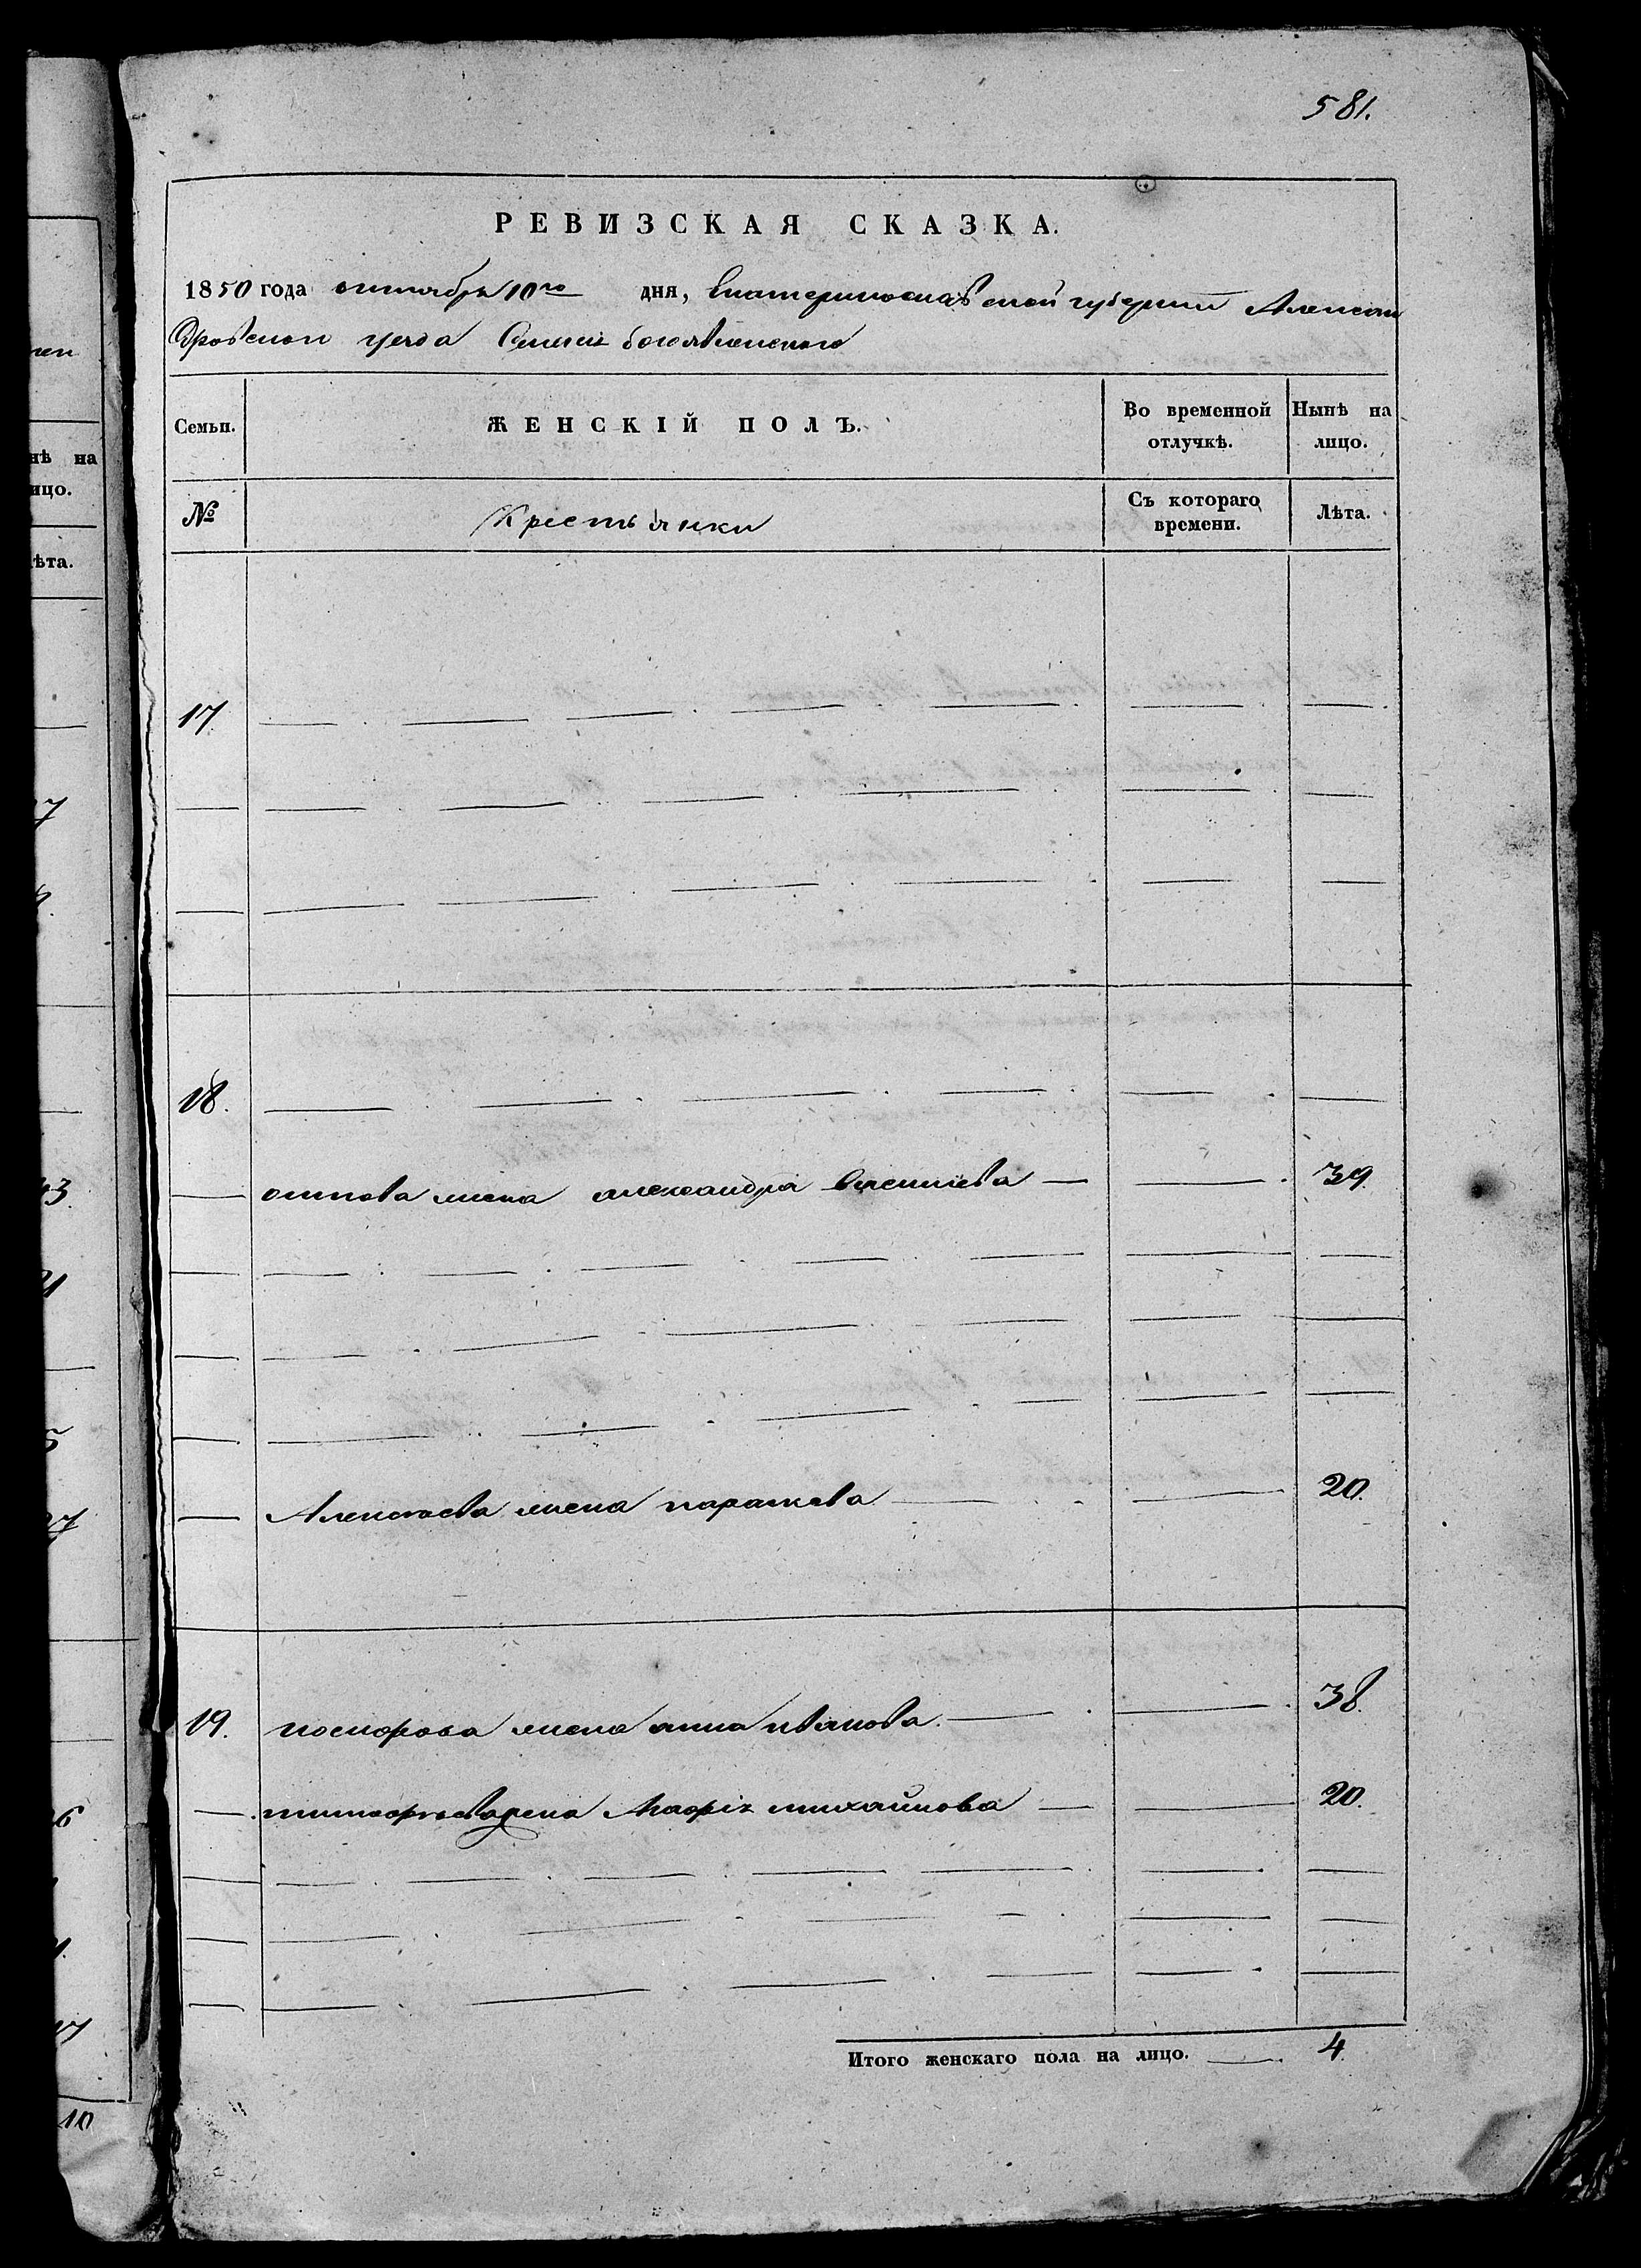 581.
РЕВИЗСКАЯ СКАЗКА.
1850 года октября 10го дня, Екатеринославской губернии Алексан
дровскои уезда Селения богоявленского
Семьи. ЖЕНСКІЙ ПОЛЪ. Во временной отлучкѣ. Нынѣ на лицо.
№ Крестьянки Съ котораго времени. Лѣта.
17
18.
жена александра 39.
Алексеева жена параскева 20.
19. жена анна иванова. 38.
тимофеева жена михайлова 20.
Итого женскаго пола на лицо. 4.
нѣ на
ицо.
ѣта.
10